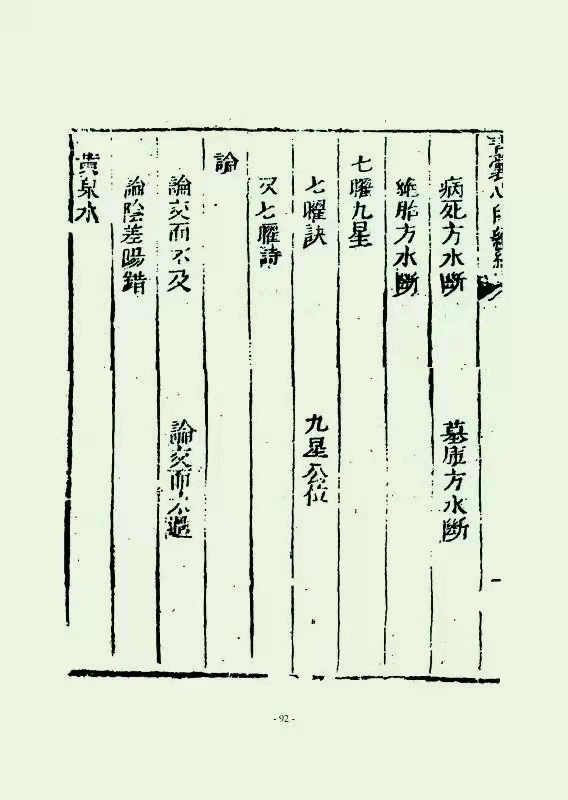 病死方水斷　墓庫方水斷
絶胎方水斷
七曜九星
七曜訣　九星公位
又七曜詩
論
論交而不及　論交而不過
論陰差陽錯
黃泉水
- 92 -